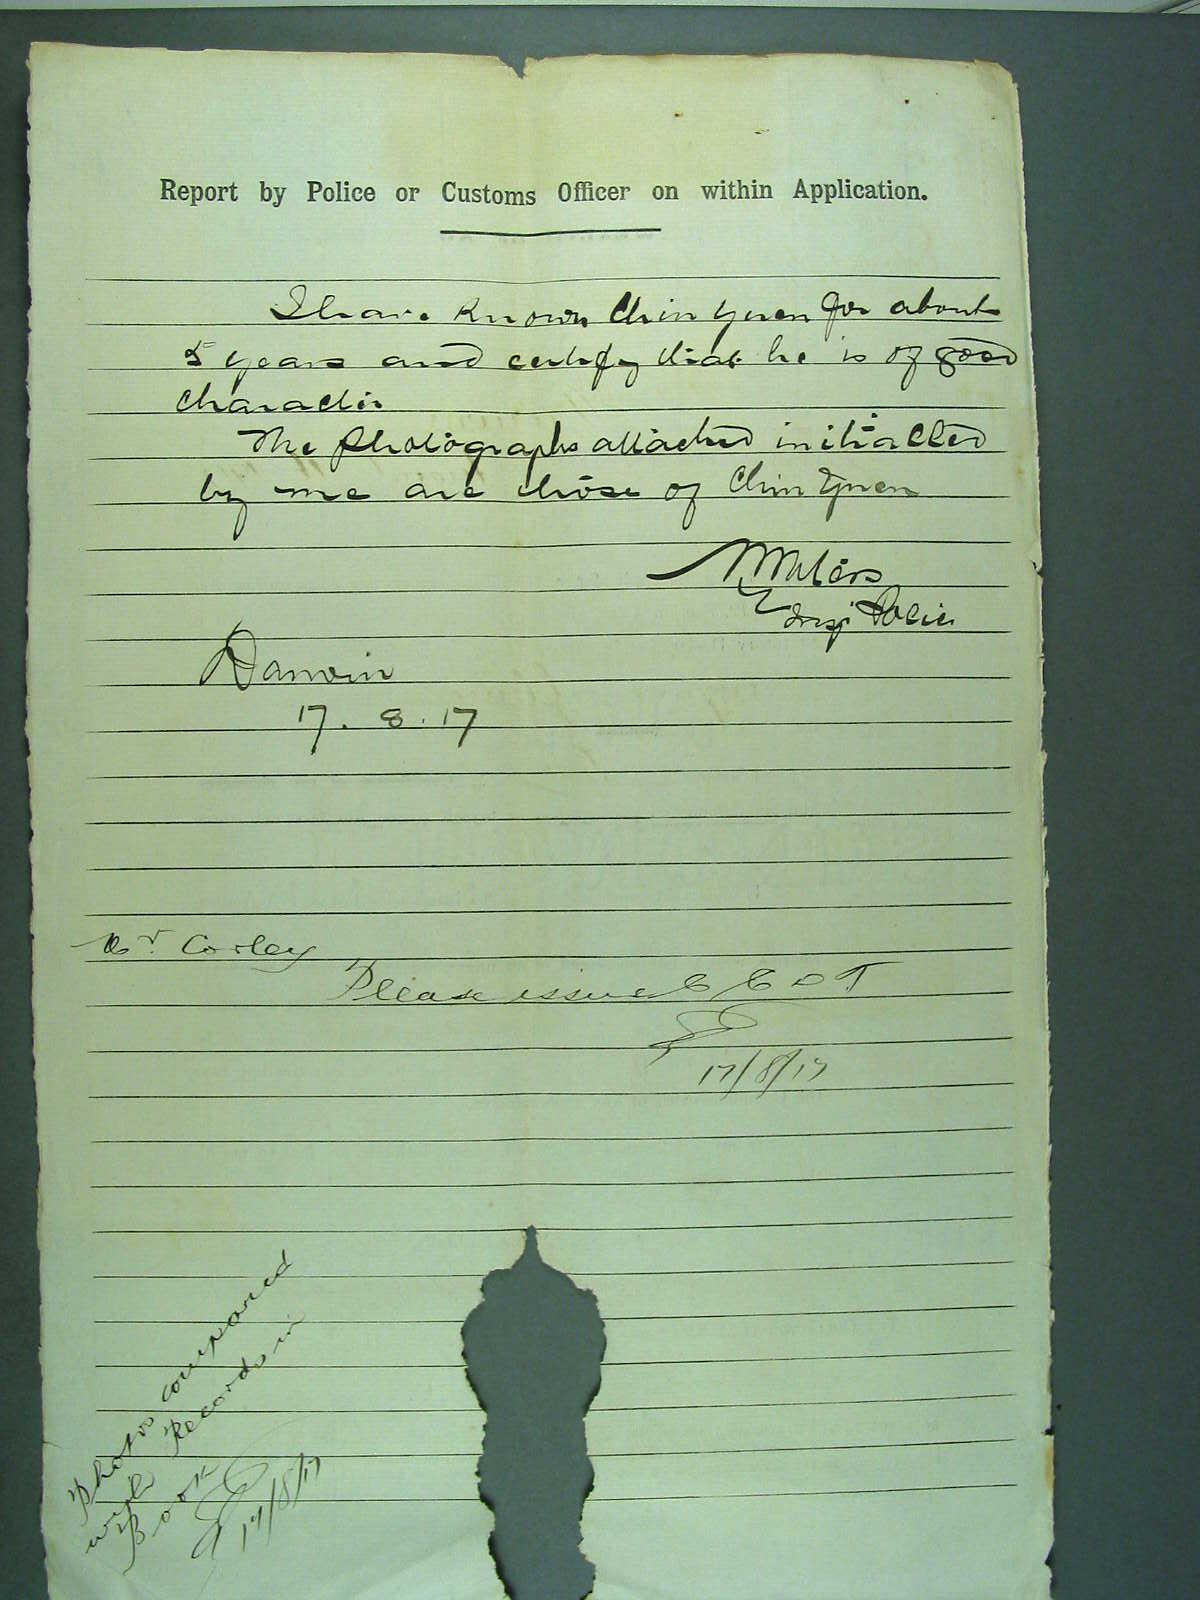 Report by Police or Customs Officer on within Application.
I have known Chin Yuen for about
5 years and certify that he is of good
character
The photographs attached initialled
by me are those of Chin Yuen
Waters
Insp Police
Darwin
17. 8. 17
Mr Corley
Please issue C E D T
17/8/17
Photos compared
with Records in
Book
17/8/17